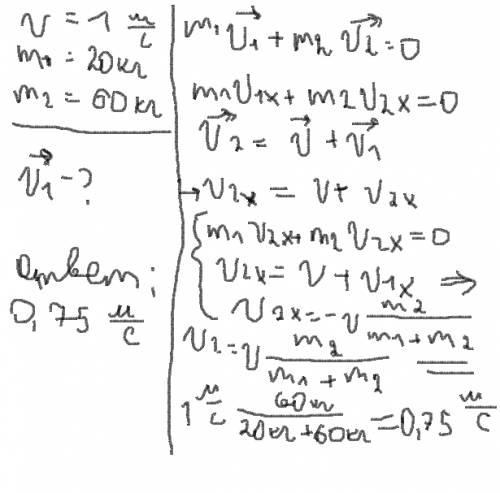 v = 1 м/с
m₁ = 20 кг
m₂ = 60 кг
v⃗₁ - ?
Ответ:
0,75 м/с
m₁v⃗₁ + m₂v⃗₂ = 0
m₁v₁ₓ + m₂v₂ₓ = 0
v⃗₂ = v⃗ + v⃗₁
→ v₂ₓ = v + v₂ₓ
{ m₁v₂ₓ + m₂v₂ₓ = 0
v₂ₓ = v + v₁ₓ ⇒
v₂ₓ = -v m₂/(m₁ + m₂)
v₂ = v m₂/(m₁ + m₂)
1 м/с 60кг/(20кг + 60кг) = 0,75 м/с